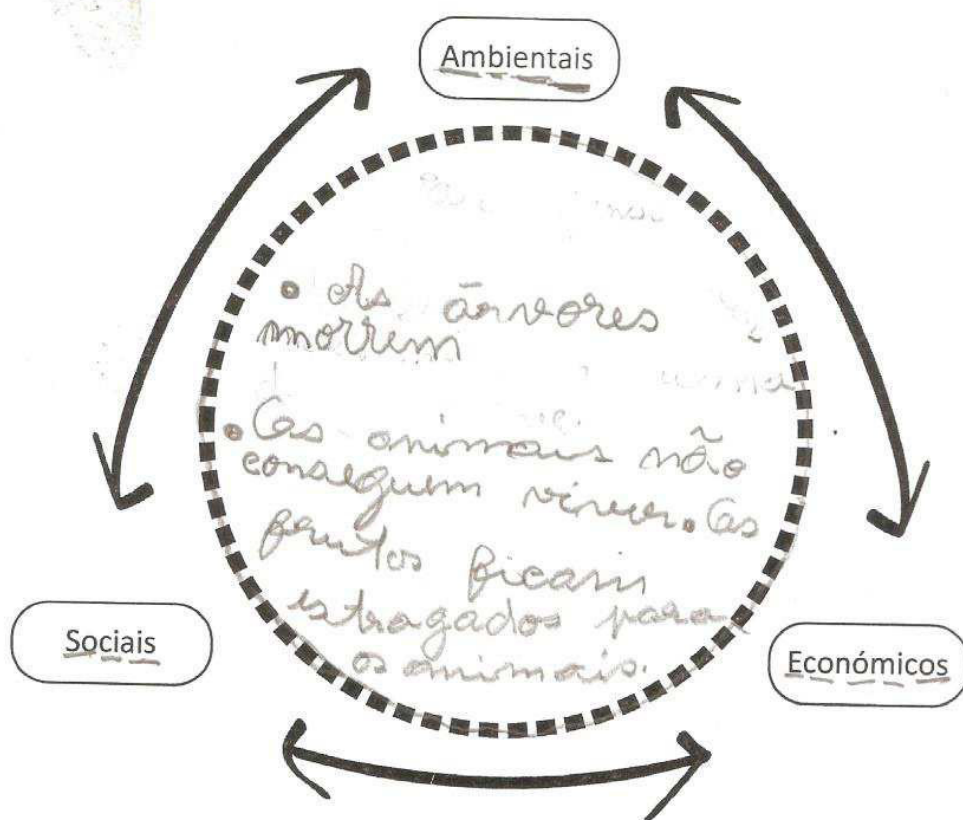 Ambientais
• As árvores
morrem
• Os animais não
conseguem viver. Os
frutos ficam
estragados para
os animais.
Sociais
Económicos